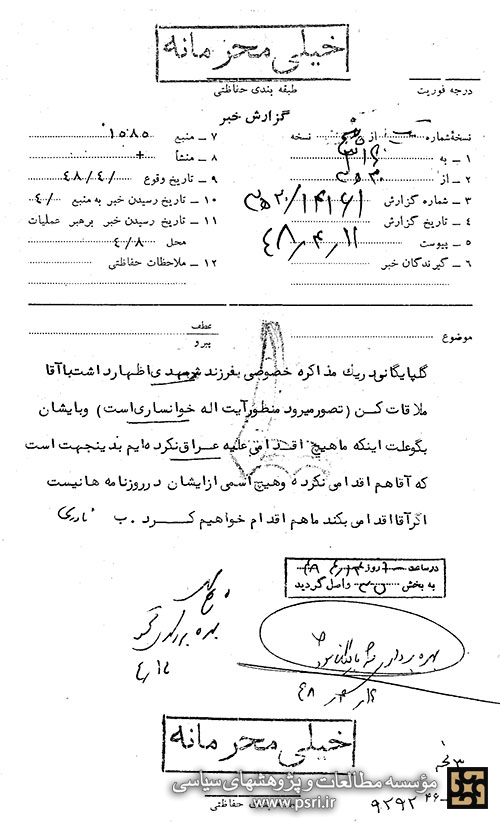 خیلی محرمانه
درجه فوریت
طبقه بندی حفاظتی
گزارش خبر
نسخه‌شماره از نسخه
۱ – به ۳۱۶
۲ – از ۲۰ ه‍ ۳
۳ – شماره گزارش ۱۴۱۶۱/۲۰ ه‍ ۳
۴ – تاریخ گزارش ۴۸٫۴٫۱۱
۵ – پیوست
۶ – گیرندگان خبر
۷ – منبع ۱۵۸۵
۸ – منشأ +
۹ – تاریخ وقوع ۴۸/۴/
۱۰ – تاریخ رسیدن خبر به منبع ۴/
۱۱ – تاریخ رسیدن خبر برهبر عملیات
محل ۴/۸
۱۲ – ملاحظات حفاظتی
موضوع
عطف
پیرو
گلپایگانی در یك مذاکره خصوصی بفرزندش مهدی اظهارداشت با آقا
ملاقات کن (تصور میرود منظور آیت اله خوانساری است) و بایشان
بگو علت اینکه ما هیچ اقدامی علیه عراق نکرده ایم بدینجهت است
که آقا هم اقدامی نکرده و هیچ اسمی از ایشان در روزنامه ها نیست
اگر آقا اقدامی بکند ما هم اقدام خواهیم کرد . ب نادری
در ساعت روز ۴۸٫۴٫۱۲
به بخش واصل گردید
بهره برداری
۴/۱۲
۴۸٫۴٫۱۲
خیلی محرمانه
طبقه بندی حفاظتی
۳ نسخه
۴۶
۹۲۹۲
مؤسسه مطالعات و پژوهشهای سیاسی
www.psri.ir